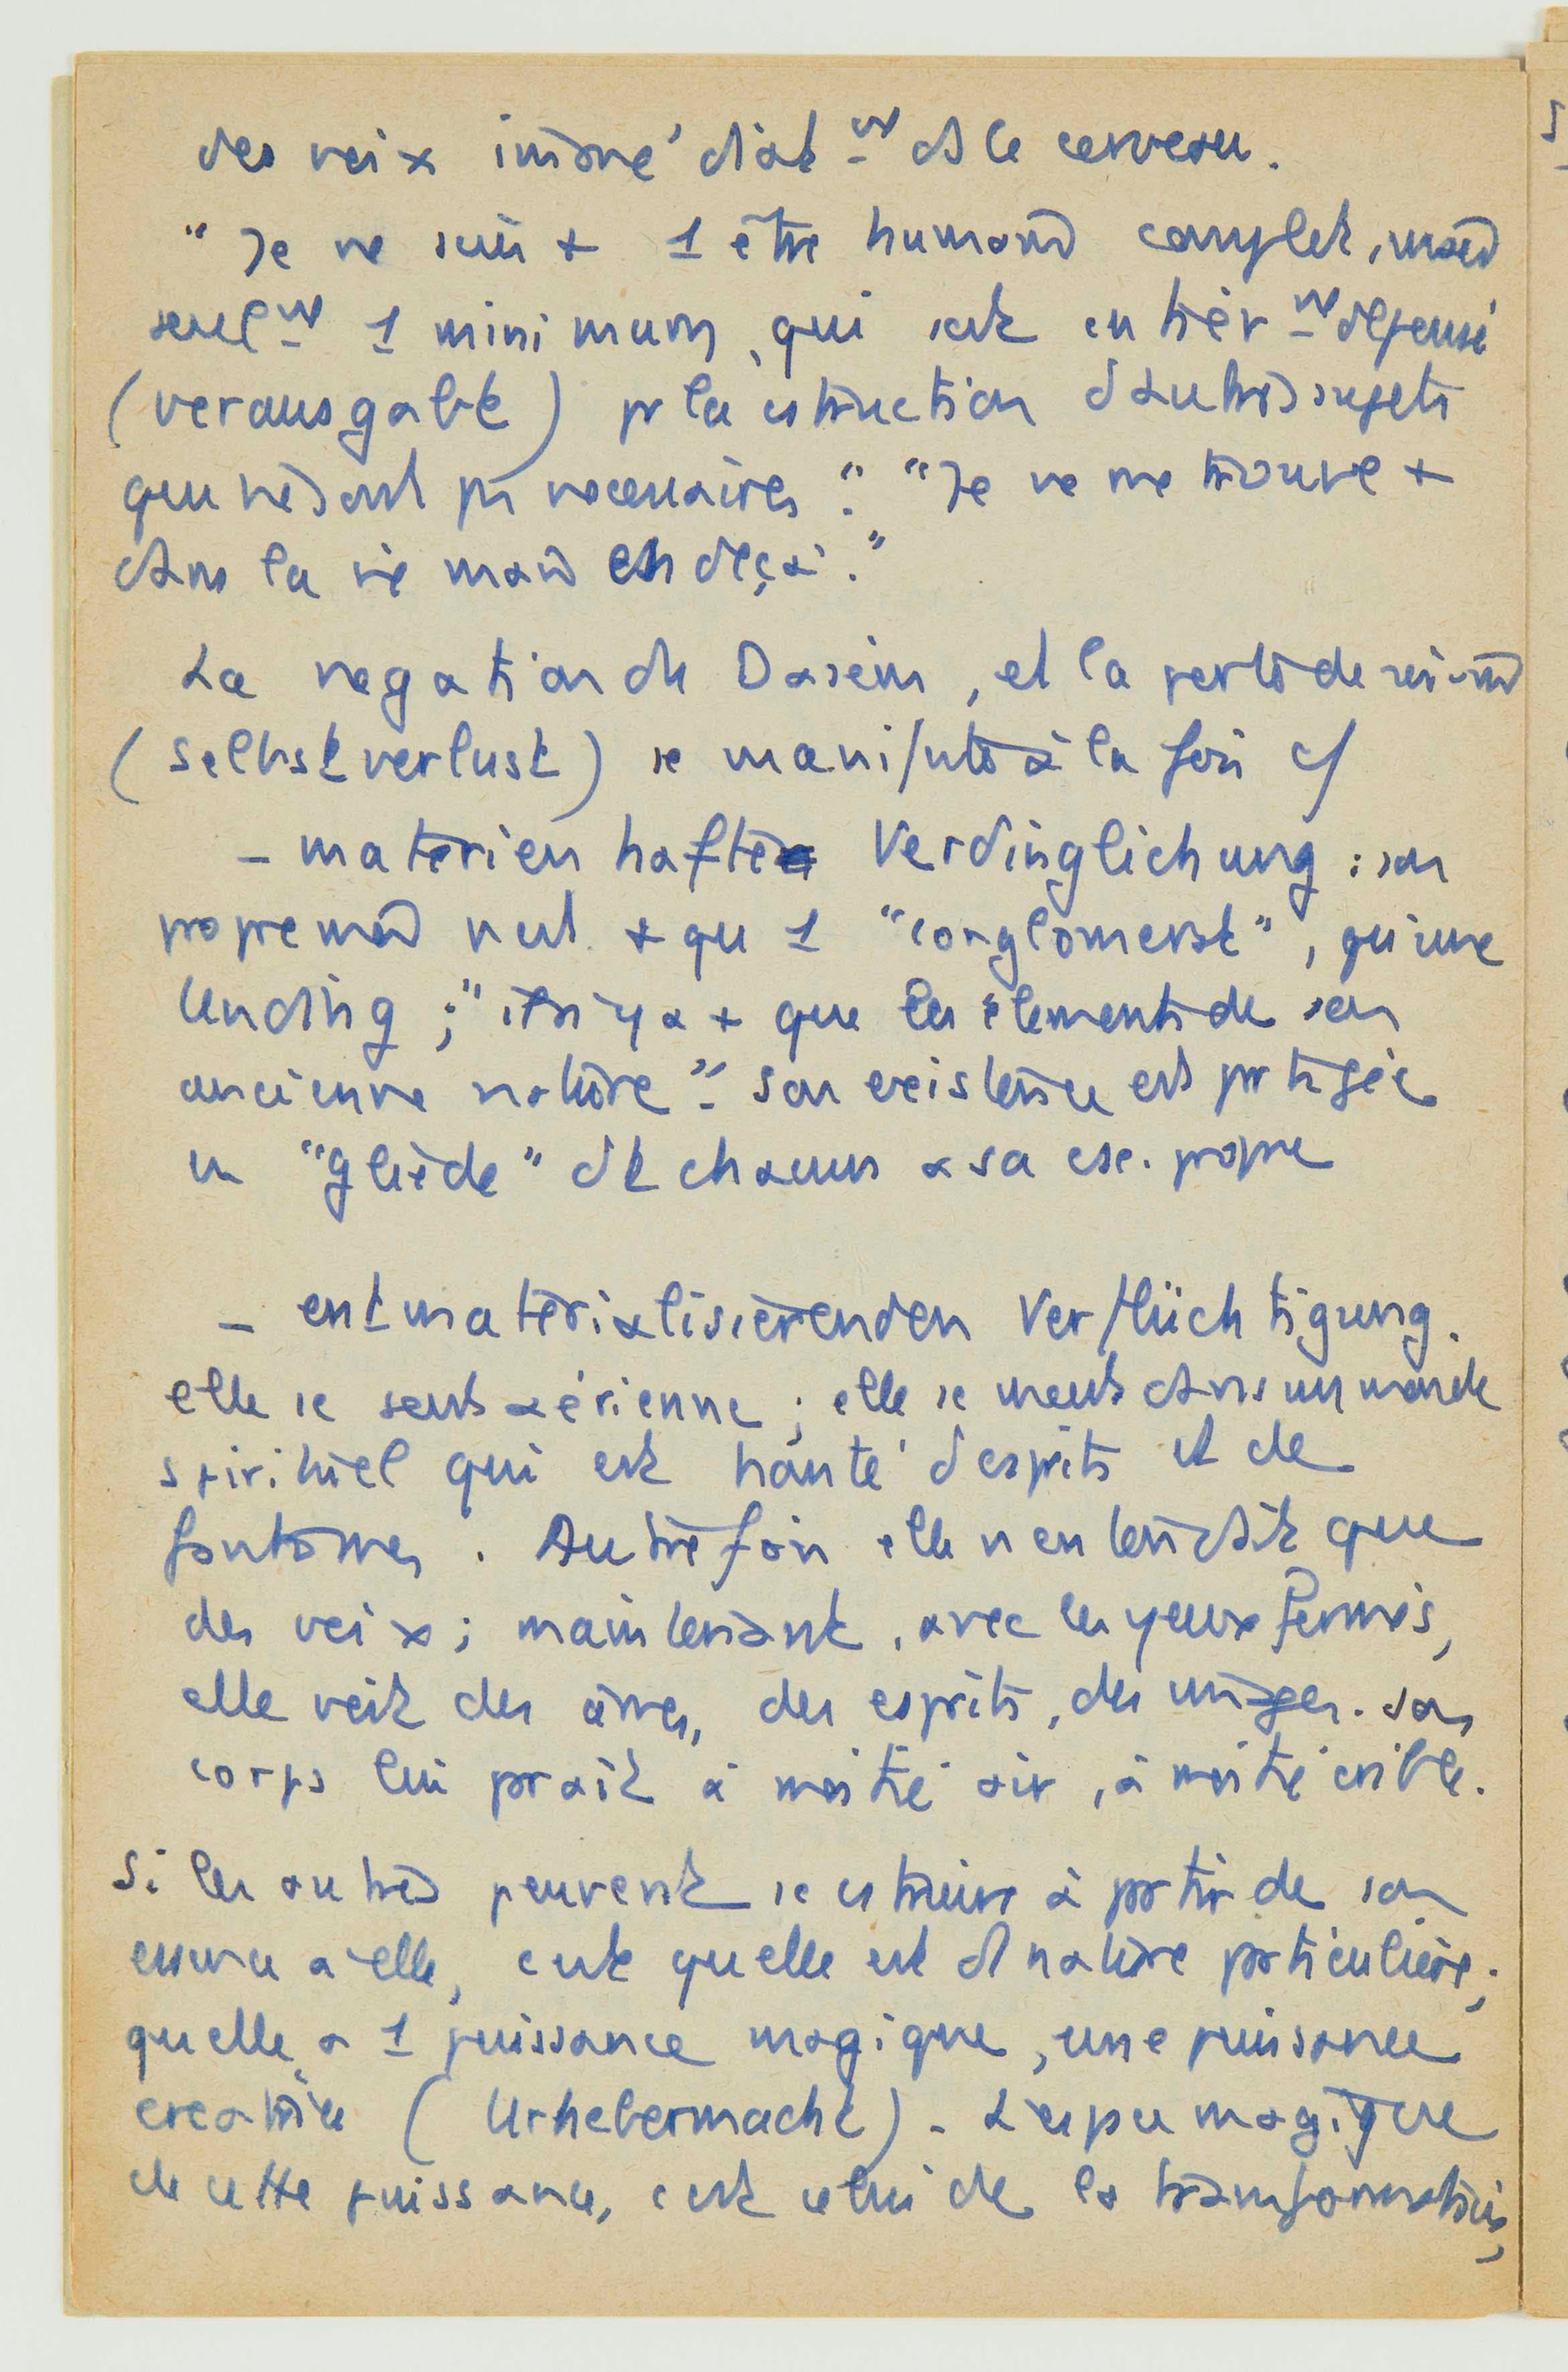 des voix immédiat-nt ds le cerveau.
"Je ne suis + 1 être humain complet, mais
seul-nt 1 minimum, qui est entièr-nt dépensé
(verausgabt) pr la cstruction d autres sujets
qui ne sont pas necessaires". "Je ne me trouve +
dans la vie mais en deçà."
La negation du Dasein, et la perte de soi-m
(Selbstverlust) se manifeste à la fois c/
- materienhafte Verdinglichung : son
propre moi nest + qu 1 "conglomerat", qu une
Unding ; "il ny a + que les élements de son
ancienne nature". Son existence est partagée
en "glieder" dt chacun a sa ex. propre
- entmaterialisierenden Verflüchtigung.
elle se sent aérienne ; elle se meut dans un monde
spirituel qui est hanté desprits et de
fantomes. Autrefois elle n entendait que
des voix ; maintenant, avec les yeux fermés,
elle voit des âmes, des esprits, des images. Son
corps lui prait à moitié air, à moitié
Si les autres peuvent se cstruire à partir de son
essence a elle, cest quelle est d nature particulière ;
quelle a 1 puissance magique, une puissance
creatrice (Urhebermacht). L espace magique
de cette puissance, cest celui de la transformation,